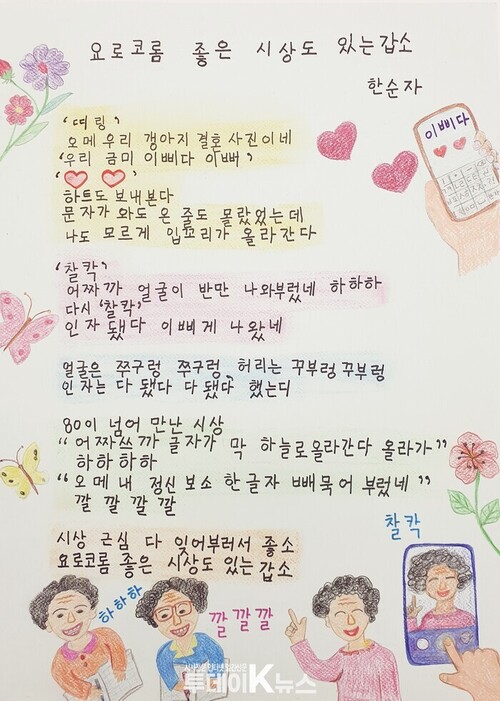 요로코롬 좋은 시상도 있는갑소
한순자
'띠링'
오메 우리 갱아지 결혼사진이네
'우리 금미 이삐다 이뻐'
'♡ ♡'
하트도 보내본다
문자가 와도 온 줄도 몰랐었는데
나도 모르게 입꼬리가 올라간다
이삐다
'찰칵'
어짜까 얼굴이 반만 나와부렀네 하하하
다시 '찰칵'
인자 됐다 이삐게 나왔네
얼굴은 쭈구렁 쭈구렁, 허리는 꾸부렁꾸부렁
인자는 다 됐다 다 됐다 했는디
80이 넘어 만난 시상
"어짜쓰까 글자가 막 하늘로올라간다 올라가"
하하하하
"오메 내 정신 보소 한글자 빼묵어 부렀네"
깔 깔 깔 깔
시상 근심 다 잊어부러서 좋소
요로코롬 좋은 시상도 있는갑소
찰칵
하하하
깔깔깔
투데이K뉴스